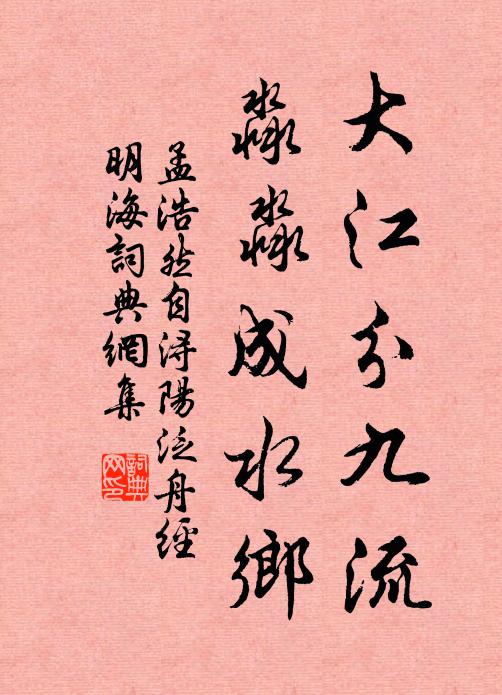 大江分九流
淼淼成水鄉
孟浩然自潯陽泛舟經
明海詞典網集
詞典网印